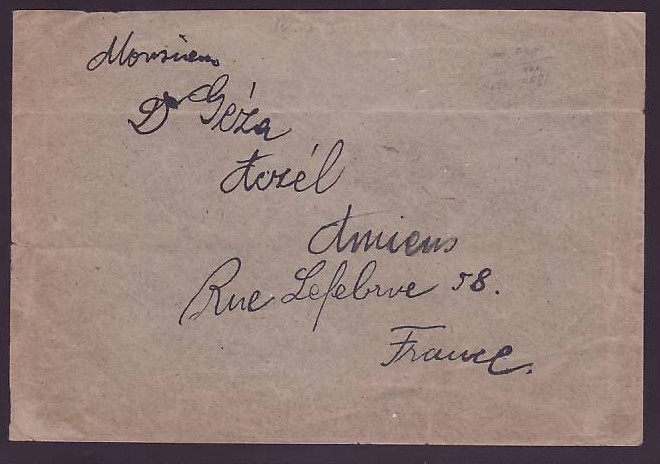 Monsieur
Dr Géza
Aczél
Amiens
Rue Lefebvre 58.
France.